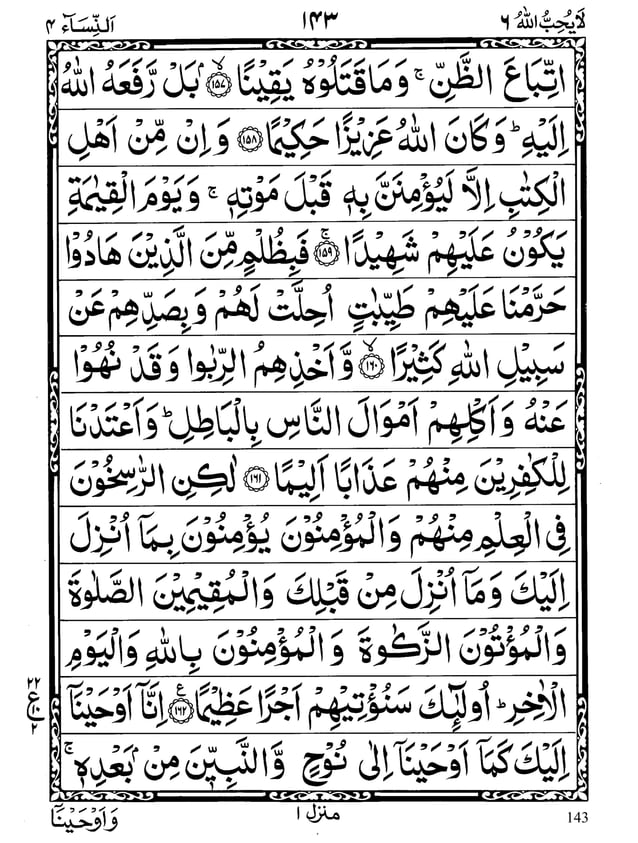 لَا یُحِبُّ اللّٰهُ ۶ ۱۴۳ اَلنِّسَآء ۴
اتِّبَاعَ الظَّنِّ ۚ وَمَا قَتَلُوْهُ یَقِیْنًا ۙ﴿۱۵۷﴾ بَلْ رَّفَعَهُ اللّٰهُ
اِلَیْهِ ؕ وَكَانَ اللّٰهُ عَزِیْزًا حَكِیْمًا ﴿۱۵۸﴾ وَ اِنْ مِّنْ اَهْلِ
الْكِتٰبِ اِلَّا لَیُؤْمِنَنَّ بِهٖ قَبْلَ مَوْتِهٖ ۚ وَیَوْمَ الْقِیٰمَةِ
یَكُوْنُ عَلَیْهِمْ شَهِیْدًا ۚ﴿۱۵۹﴾ فَبِظُلْمٍ مِّنَ الَّذِیْنَ هَادُوْا
حَرَّمْنَا عَلَیْهِمْ طَیِّبٰتٍ اُحِلَّتْ لَهُمْ وَبِصَدِّهِمْ عَنْ
سَبِیْلِ اللّٰهِ كَثِیْرًا ۙ﴿۱۶۰﴾ وَّاَخْذِهِمُ الرِّبٰوا وَقَدْ نُهُوْا
عَنْهُ وَاَكْلِهِمْ اَمْوَالَ النَّاسِ بِالْبَاطِلِ ؕ وَاَعْتَدْنَا
لِلْكٰفِرِیْنَ مِنْهُمْ عَذَابًا اَلِیْمًا ﴿۱۶۱﴾ لٰكِنِ الرّٰسِخُوْنَ
فِی الْعِلْمِ مِنْهُمْ وَالْمُؤْمِنُوْنَ یُؤْمِنُوْنَ بِمَاۤ اُنْزِلَ
اِلَیْكَ وَمَاۤ اُنْزِلَ مِنْ قَبْلِكَ وَالْمُقِیْمِیْنَ الصَّلٰوةَ
وَالْمُؤْتُوْنَ الزَّكٰوةَ وَالْمُؤْمِنُوْنَ بِاللّٰهِ وَالْیَوْمِ
الْاٰخِرِ ؕ اُولٰٓئِكَ سَنُؤْتِیْهِمْ اَجْرًا عَظِیْمًا ﴿۱۶۲﴾ۧ اِنَّاۤ اَوْحَیْنَاۤ
۲۲ ع ۲
اِلَیْكَ كَمَاۤ اَوْحَیْنَاۤ اِلٰی نُوْحٍ وَّالنَّبِیّٖنَ مِنْۢ بَعْدِهٖ ۚ
143 منزل ۱ وَاَوْحَیْنَاۤ